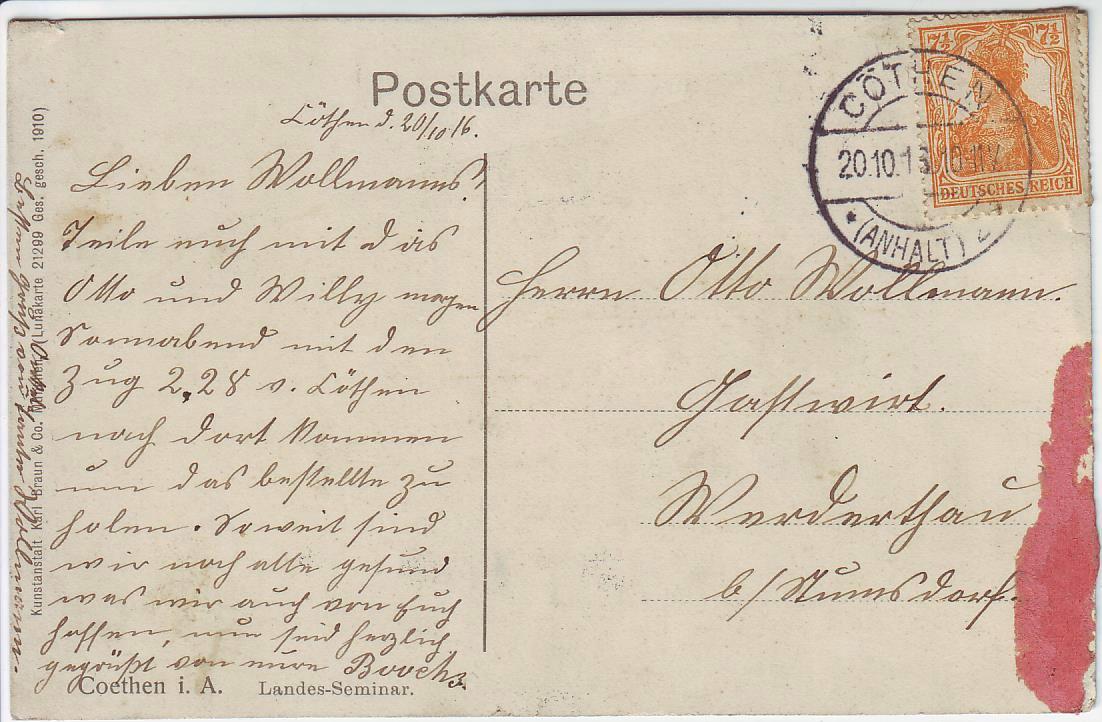 Postkarte
Cöthen d. 20/10 16.
Lieben Wollmanns!
Teile euch mit das
Otto und Willy morgen
Sonnabend mit den
Zug 2.28 v. Cöthen
nach dort kommen
um das bestellte zu
holen. Soweit sind
wir noch alle gesund
was wir auch von Euch
hoffen, nun seid herzlich
gegrüßt von eure
Coethen i. A. Landes-Seminar.
Kunstanstalt Karl Braun & Co. (Lunakarte 21299 Ges. gesch. 1910)
CÖTHEN
20.10.16.10-11V.
* (ANHALT) 2
7½ 7½
DEUTSCHES REICH
Herrn Otto Wollmann.
Gastwirt.
Werderthau
b/Stumsdorf.